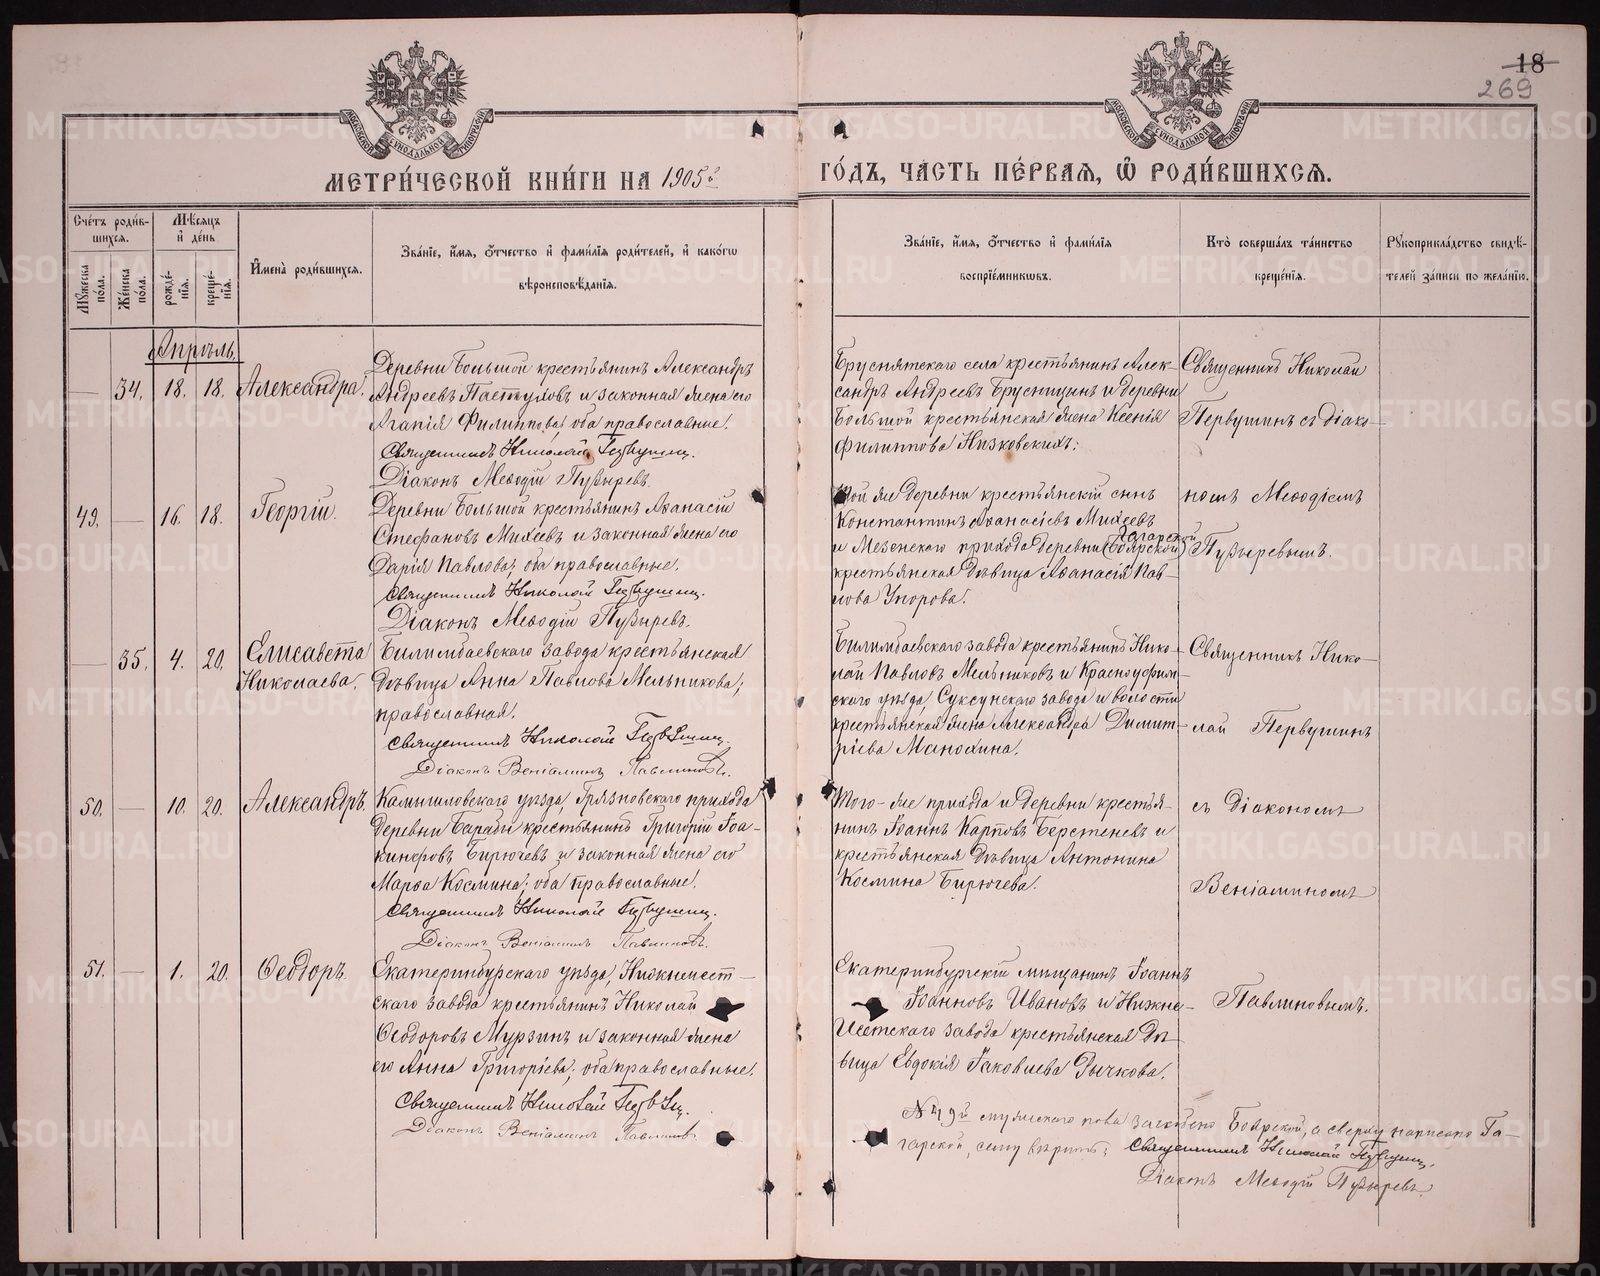 18
269
МЕТРИ́ЧЕСКОЙ КНИ́ГИ НА 1905й ГО́ДЪ, ЧА́СТЬ ПЕ́РВАЯ, Ѽ РОДИ́ВШИХСЯ.
Сче́тъ роди́в-
шихся.
Мѣ́сяцъ
и҆ де́нь
Му́жеска по́ла.
Же́нска по́ла.
рожде́-нїя.
креще́-нїя.
И҆мена̀ роди́вшихся.
Зва́нїе, и҆́мя, ѻ҆́тчество и҆ фами́лїя роди́телей, и҆ како́гѡ
вѣроисповѣ́данїя.
Зва́нїе, и҆́мя, ѻ҆́тчество и҆ фами́лїя
воспрїе́мникѡвъ.
Кто̀ соверша́лъ та́инство
креще́нїя.
Рꙋкоприкла́дство свидѣ́-
телей за́писи по жела́нїю.
Апрѣль.
— 34. 18. 18. Александра.
Деревни Большой крестьянинъ Александръ
Андреевъ Пастуховъ и законная жена его
Агапія Филиппова; оба православные.
Священникъ Николай Первушинъ.
Діаконъ Меѳодій Пузыревъ.
Бруснятскаго села крестьянинъ Алек-
сандръ Андреевъ Брусницынъ и деревни
Большой крестьянская жена Ксенія
Филиппова Низковскихъ.
Священникъ Николай
Первушинъ съ діако-
49. — 16. 18. Георгій.
Деревни Большой крестьянинъ Аѳанасій
Стефановъ Михеевъ и законная жена его
Дарія Павлова; оба православные.
Священникъ Николай Первушинъ.
Діаконъ Меѳодій Пузыревъ.
Той же деревни крестьянскій сынъ
Константинъ Аѳанасіевъ Михеевъ
Гагарской
и Мезенскаго прихода деревни (Боярской)
крестьянская дѣвица Аѳанасія Пав-
лова Упорова.
номъ Меѳодіемъ
Пузыревымъ.
— 35. 4. 20. Елисавета
Николаева.
Билимбаевскаго завода крестьянская
дѣвица Анна Павлова Мельникова;
православная.
Священникъ Николай Первушинъ.
Діаконъ Веніаминъ Павлиновъ.
Билимбаевскаго завода крестьянинъ Нико-
лай Павловъ Мельниковъ и Красноуфим-
скаго уѣзда, Суксунскаго завода и волости
крестьянская жена Александра Димит-
ріева Манохина.
Священникъ Нико-
лай Первушинъ
50. — 10. 20. Александръ.
Камышловскаго уѣзда, Грязновскаго прихода
деревни Барабы крестьянинъ Григорій Іоа-
кинфовъ Бирючевъ и законная жена его
Марѳа Космина; оба православные.
Священникъ Николай Первушинъ.
Діаконъ Веніаминъ Павлиновъ.
Того-же прихода и деревни крестья-
нинъ Іоаннъ Карповъ Берстеневъ и
крестьянская дѣвица Антонина
Космина Бирючева.
съ Діакономъ
Веніаминомъ
51. — 1. 20. Ѳеодоръ.
Екатеринбургскаго уѣзда, Нижнеисет-
скаго завода крестьянинъ Николай
Ѳеодоровъ Мурзинъ и законная жена
его Анна Григоріева; оба православные.
Священникъ Николай Первушинъ.
Діаконъ Веніаминъ Павлиновъ.
Екатеринбургскій мѣщанинъ Іоаннъ
Іоанновъ Ивановъ и Нижне-
Исетскаго завода крестьянская дѣ-
вица Евдокія Іаковлева Рычкова.
Павлиновымъ.
№ 49й мужскаго пола заскоблено Боярской, а сверху написано Га-
гарской, сему вѣрить; Священникъ Николай Первушинъ.
Діаконъ Меѳодій Пузыревъ.